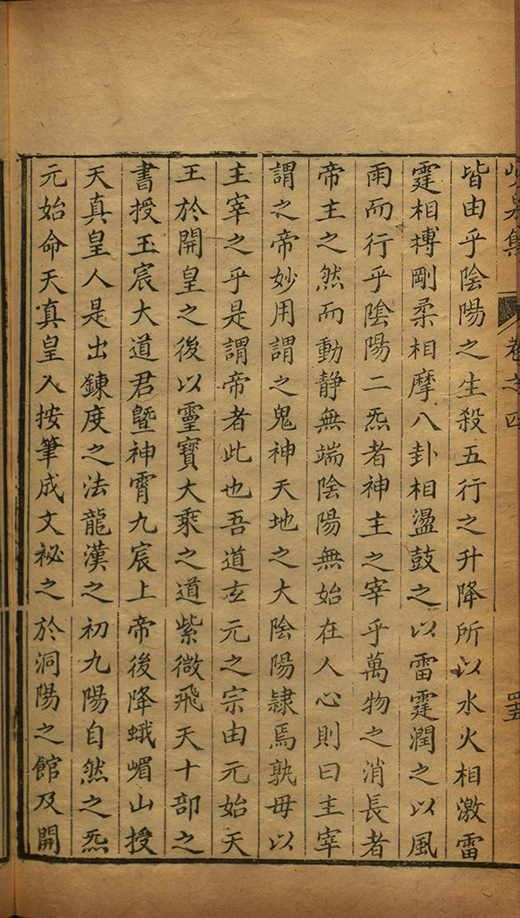 峴泉集 卷之四 四五
皆由乎陰陽之生殺五行之升降所以水火相激雷
霆相搏剛柔相摩八卦相盪鼓之以雷霆潤之以風
雨而行乎陰陽二炁者神主之宰乎萬物之消長者
帝主之然而動静無端陰陽無始在人心則曰主宰
謂之帝妙用謂之鬼神天地之大陰陽隷焉孰毋以
主宰之乎是謂帝者此也吾道玄元之宗由元始天
王於開皇之後以靈寶大乘之道紫微飛天十部之
書授玉宸大道君曁神霄九宸上帝後降蛾嵋山授
天真皇人是出鍊度之法龍漢之初九陽自然之炁
元始命天真皇人按筆成文祕之於洞陽之館及開